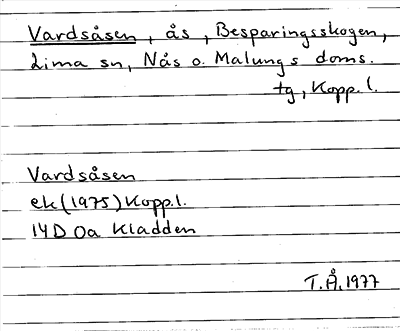 Vardsåsen, ås, Besparingsskogen,
Lima sn, Nås o. Malungs doms.
tg, Kopp. l.
Vardsåsen
ek (1975) Kopp.l.
14D 0a Kladden
T.Å. 1977